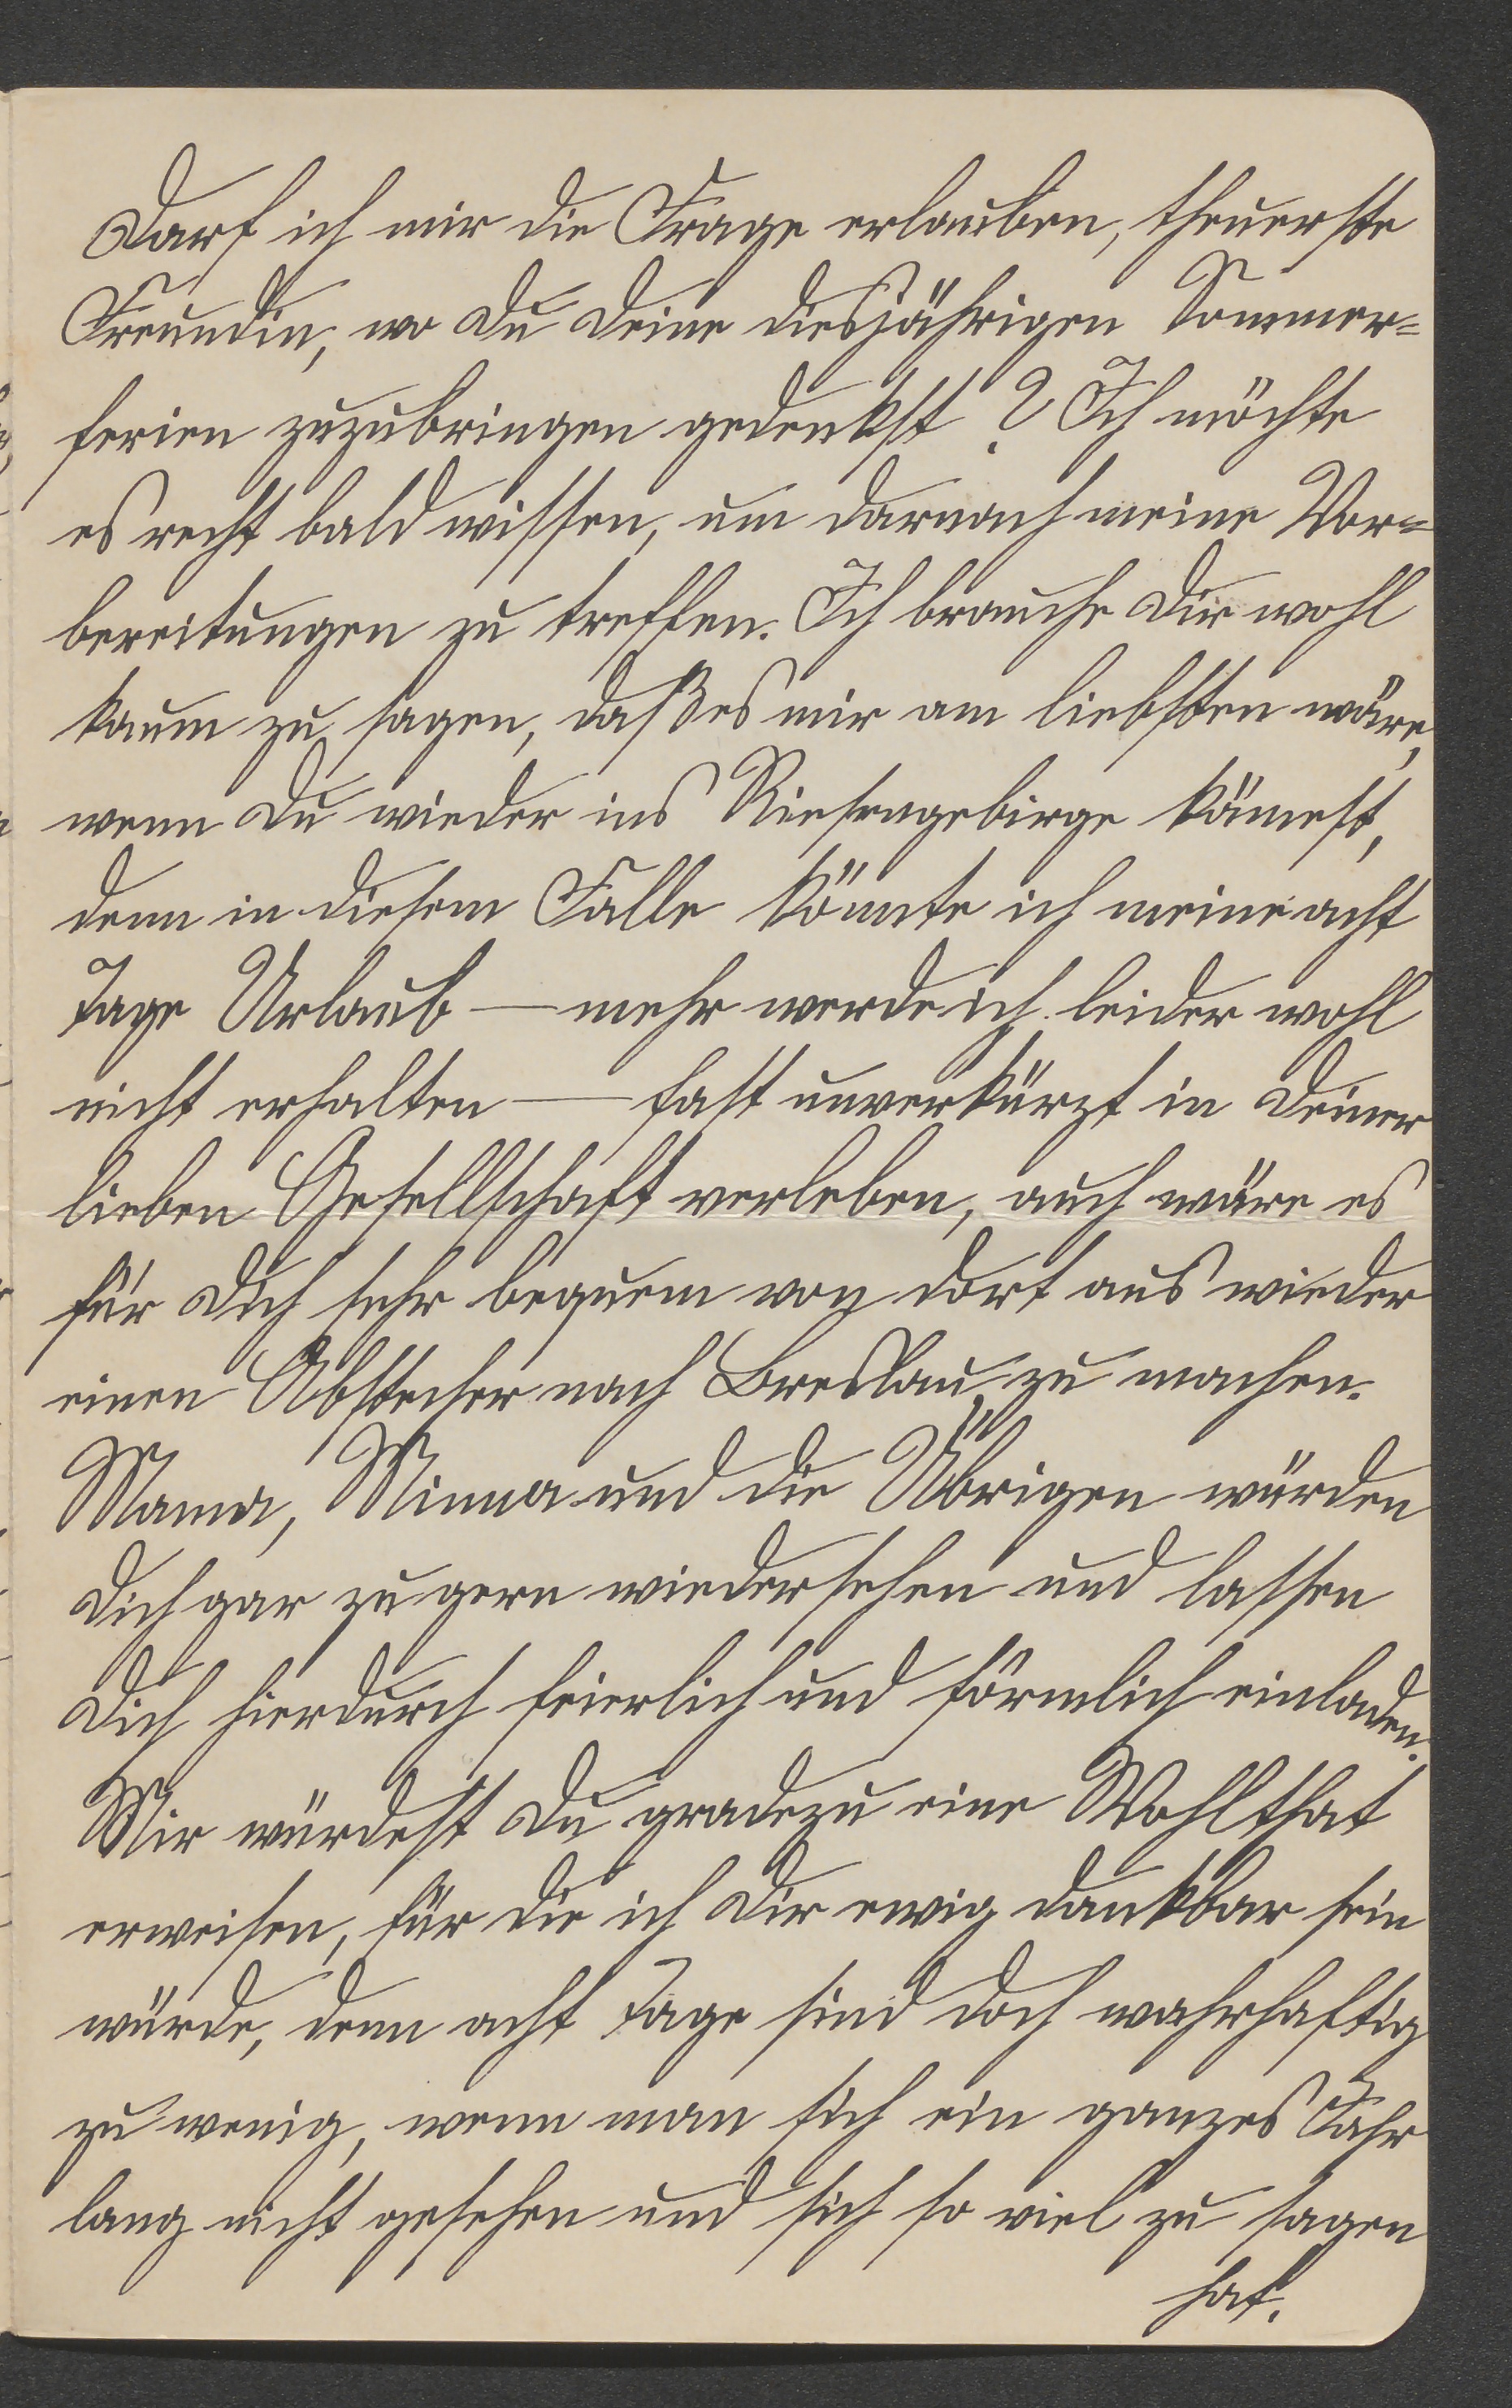 Darf ich mir die Frage erlauben, theuerste
Freundin, wo Du Deine diesjährigen Sommer=
ferien zuzubringen gedenkst? Ich möchte
es recht bald wissen, um darnach meine Vor=
bereitungen zu treffen. Ich brauche Dir wohl
kaum zu sagen, daß es mir am liebsten wäre,
wenn Du wieder ins Riesengebirge kämest,
denn in diesem Falle könnte ich meine acht
Tage Urlaub — mehr werde ich leider wohl
nicht erhalten — fast unverkürzt in Deiner
lieben Gesellschaft verleben, auch wäre es
für Dich sehr bequem von dort aus wieder
einen Abstecher nach Breslau zu machen.
Mama, Minna und die Übrigen würden
Dich gar zu gern wiedersehen und lassen
Dich hierdurch feierlich und förmlich einladen.
Mir würdest Du gradezu eine Wohlthat
erweisen, für die ich Dir ewig dankbar sein
würde, denn acht Tage sind doch wahrhaftig
zu wenig, wenn man sich ein ganzes Jahr
lang nicht gesehen und sich so viel zu sagen
hat.